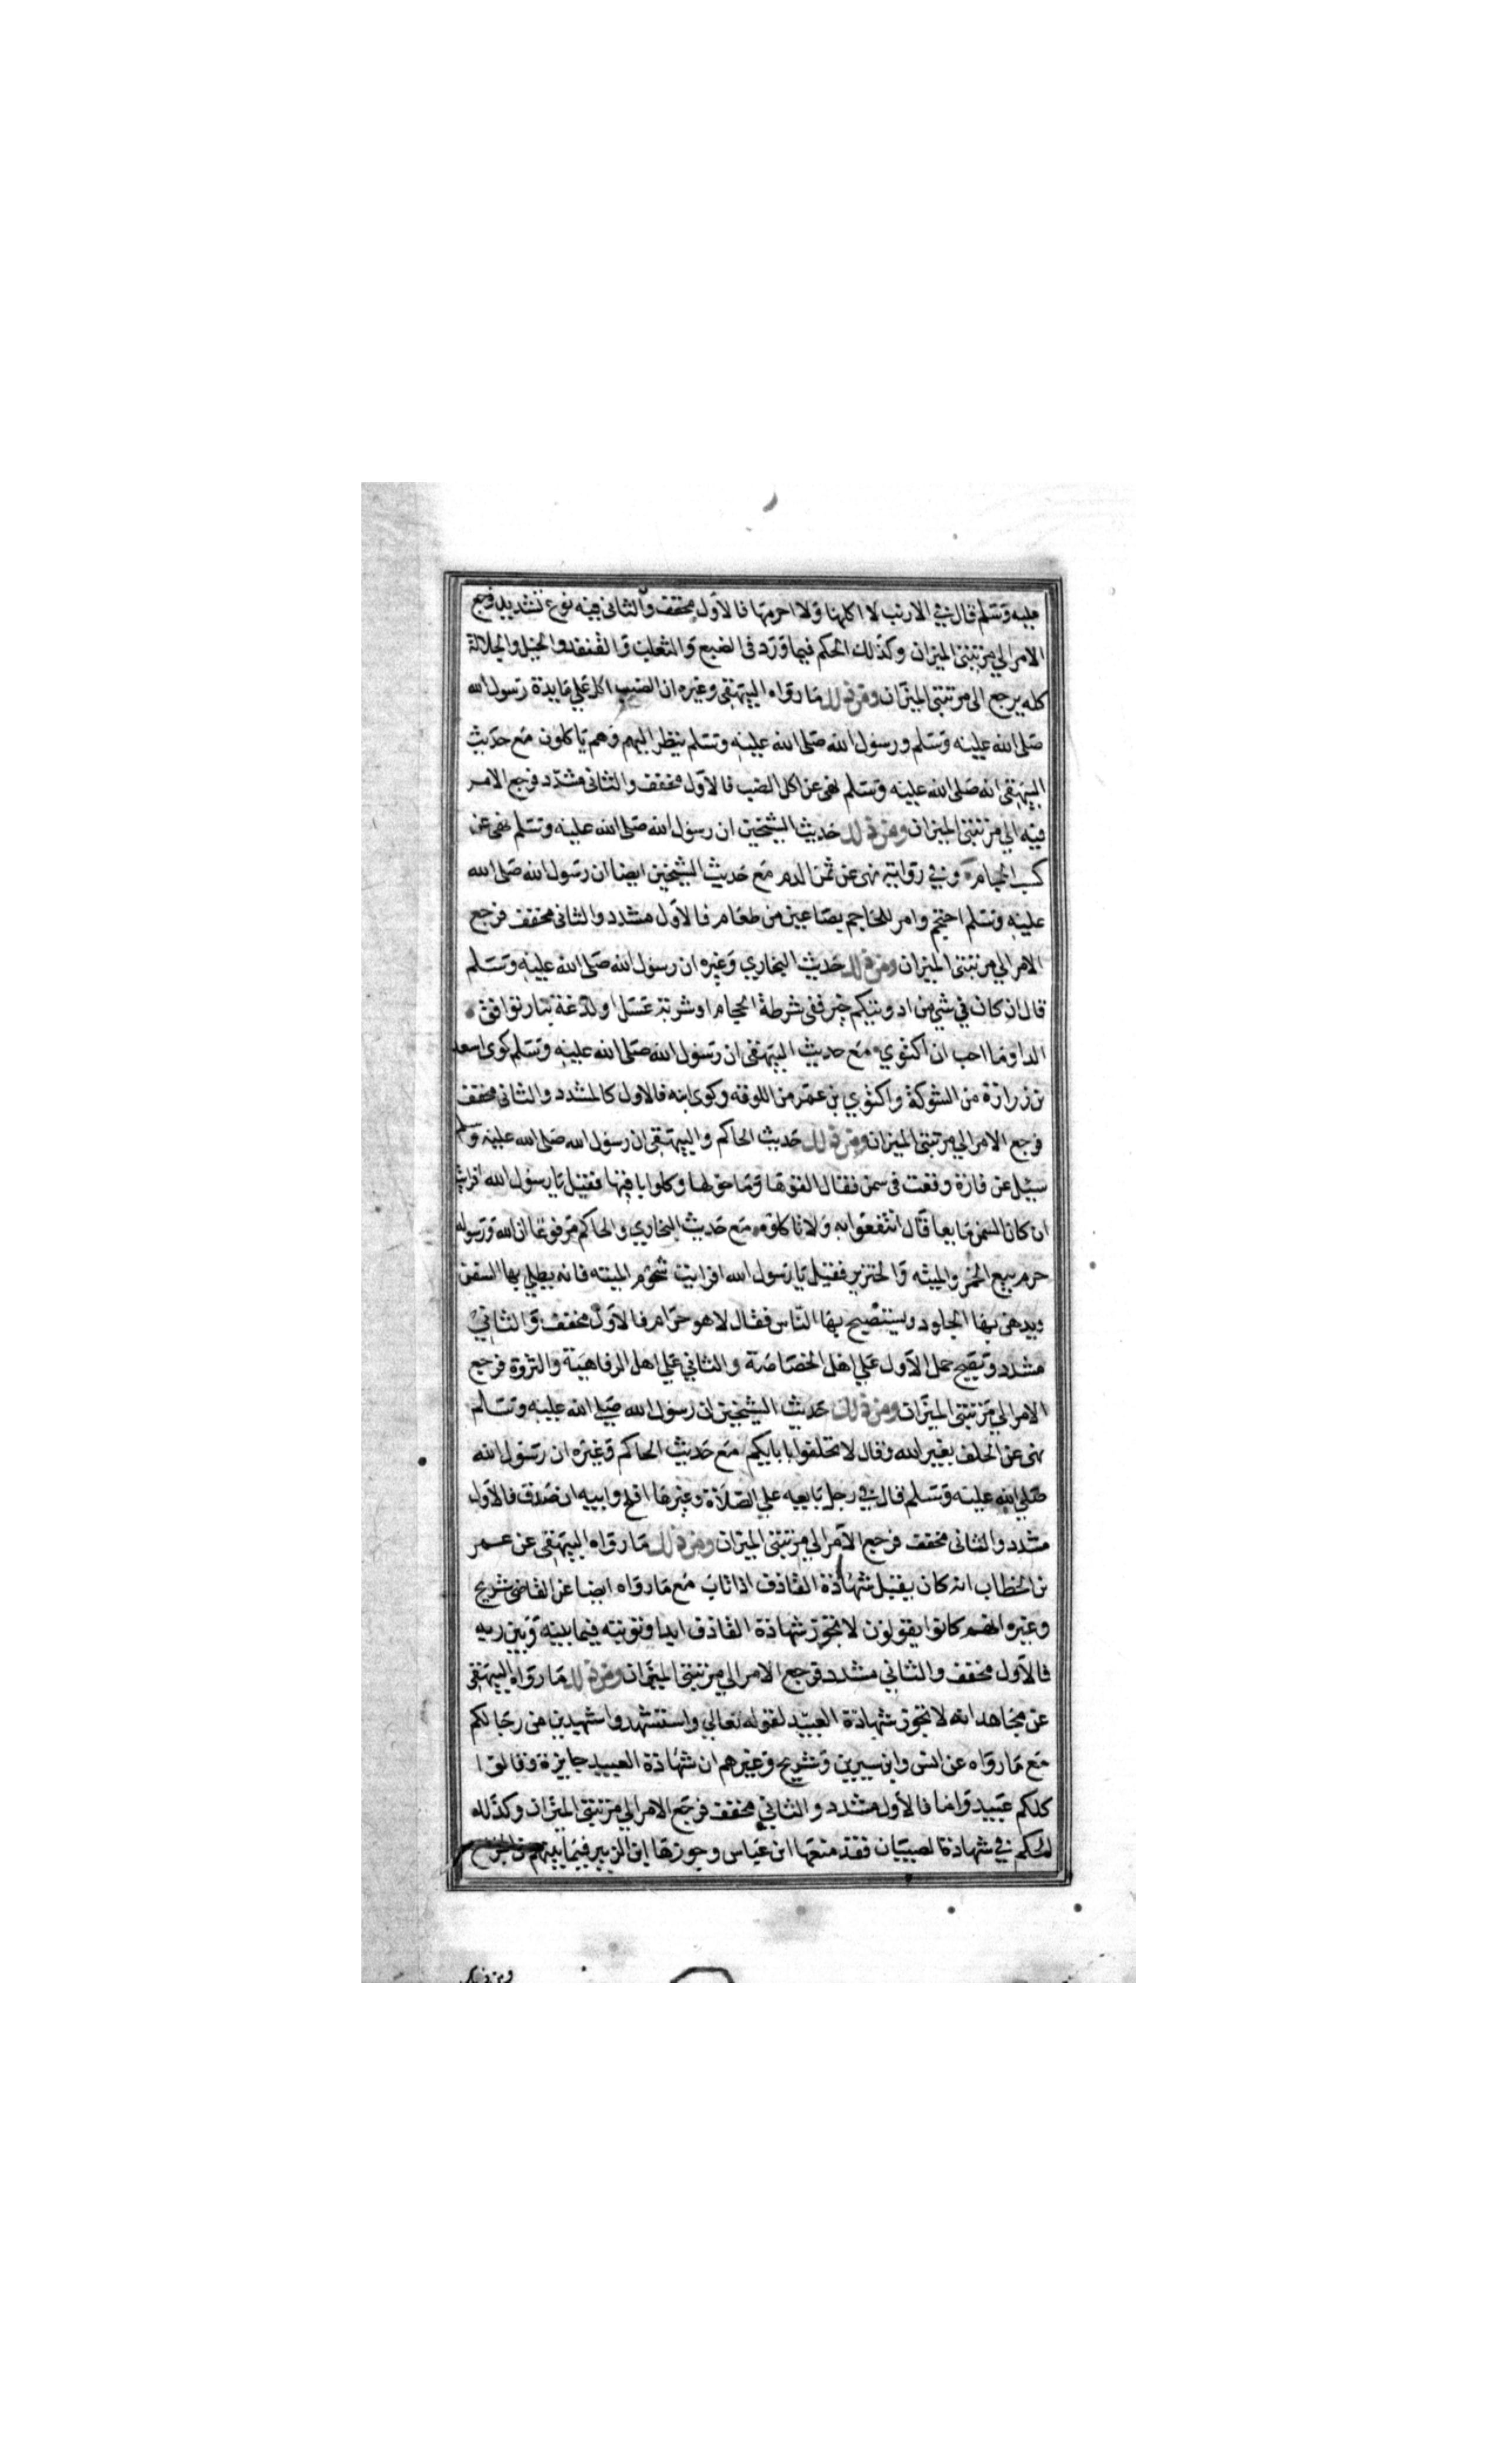 عليه وسلم قال في الارنب لا اكلها ولا احرمها فالاول مخفف والثاني فيه نوع تشديد فرجع
الامر الي مرتبتي الميزان وكذلك الحكم فيما ورد في الضبع والثعلب والقنفد والخيل والجلالة
كله يرجع الى مرتبتي الميزان ومن ذلك ما رواه البيهقي وغيره ان الضب اكل علي مايدة رسول الله
صلى الله عليه وسلم ورسول الله صلى الله عليه وسلم ينظر اليهم وهم ياكلون مع حديث
البيهقي انه صلى الله عليه وسلم نهى عن اكل الضب فالاول مخفف والثاني مشدد فرجع الامر
فيه الي مرتبتي الميزان ومن ذلك حديث الشيخين ان رسول الله صلى الله عليه وسلم نهى عن
كسب الحجامة وفي رواية نهى عن ثمن الدم مع حديث الشيخين ايضا ان رسول الله صلى الله
عليه وسلم احتجم وامر للحاجم بصاعين من طعام فالاول مشدد والثاني مخفف فرجع
الامر الي مرتبتي الميزان ومن ذلك حديث البخاري وغيره ان رسول الله صلى الله عليه وسلم
قال ان كان في شي من ادويتكم خير ففي شرطة الحجام او شربة عسل او لدغة بنار توافق
الدا وما احب ان اكتوي مع حديث البيهقي ان رسول الله صلى الله عليه وسلم كوى اسعد
بن زرارة من الشوكة واكتوي بن عمر من اللوقه وكوى ابنه فالاول كالمشدد والثاني مخفف
فرجع الامر الي مرتبتي الميزان ومن ذلك حديث الحاكم والبيهقي ان رسول الله صلى الله عليه وسلم
سيل عن فارة وقعت في سمن فقال القوها وما حولها وكلوا ما فيها فقيل يا رسول الله افرايت
ان كان السمن مايعا قال انتفعوا به ولا تاكلوه مع حديث البخاري والحاكم مرفوعا ان الله ورسوله
حرم بيع الخمر والميته والخنزير فقيل يا رسول الله افرايت شحوم الميته فانه يطلي بها السفن
ويدهن بها الجلود ويستصبح بها الناس فقال لا هو حرام فالاول مخفف والثاني
مشدد ويصح حمل الاول علي اهل الخصاصة والثاني علي اهل الرفاهية والثروة فرجع
الامر الي مرتبتي الميزان ومن ذلك حديث الشيخين ان رسول الله صلي الله عليه وسلم
نهى عن الحلف بغير الله وقال لا تحلفوا بابايكم مع حديث الحاكم وغيره ان رسول الله
صلي الله عليه وسلم قال في رجل بايعه علي الصلاة وغيرها افلح وابيه ان صدق فالاول
مشدد والثاني مخفف فرجع الامر الي مرتبتي الميزان ومن ذلك ما رواه البيهقي عن عمر
بن الخطاب انه كان يقبل شهادة القاذف اذا تاب مع ما رواه ايضا عن القاضي شريح
وغيره انهم كانوا يقولون لا تجوز شهادة القاذف ابدا وتوبته فيما بينه وبين ربه
فالاول مخفف والثاني مشدد فرجع الامر الي مرتبتي الميزان ومن ذلك ما رواه البيهقي
عن مجاهد انه لا تجوز شهادة العبيد لقوله تعالي واستشهدوا شهيدين من رجالكم
مع ما رواه عن انس وابن سيرين وشريح وغيرهم ان شهادة العبيد جايزة وقالوا
كلكم عبيد واما فالاول مشدد والثاني مخفف فرجع الامر الي مرتبتي الميزان وكذلك
الحكم في شهادة الصبيان فقد منعها ابن عباس وجوزها ابن الزبير فيما بينهم من الجراح